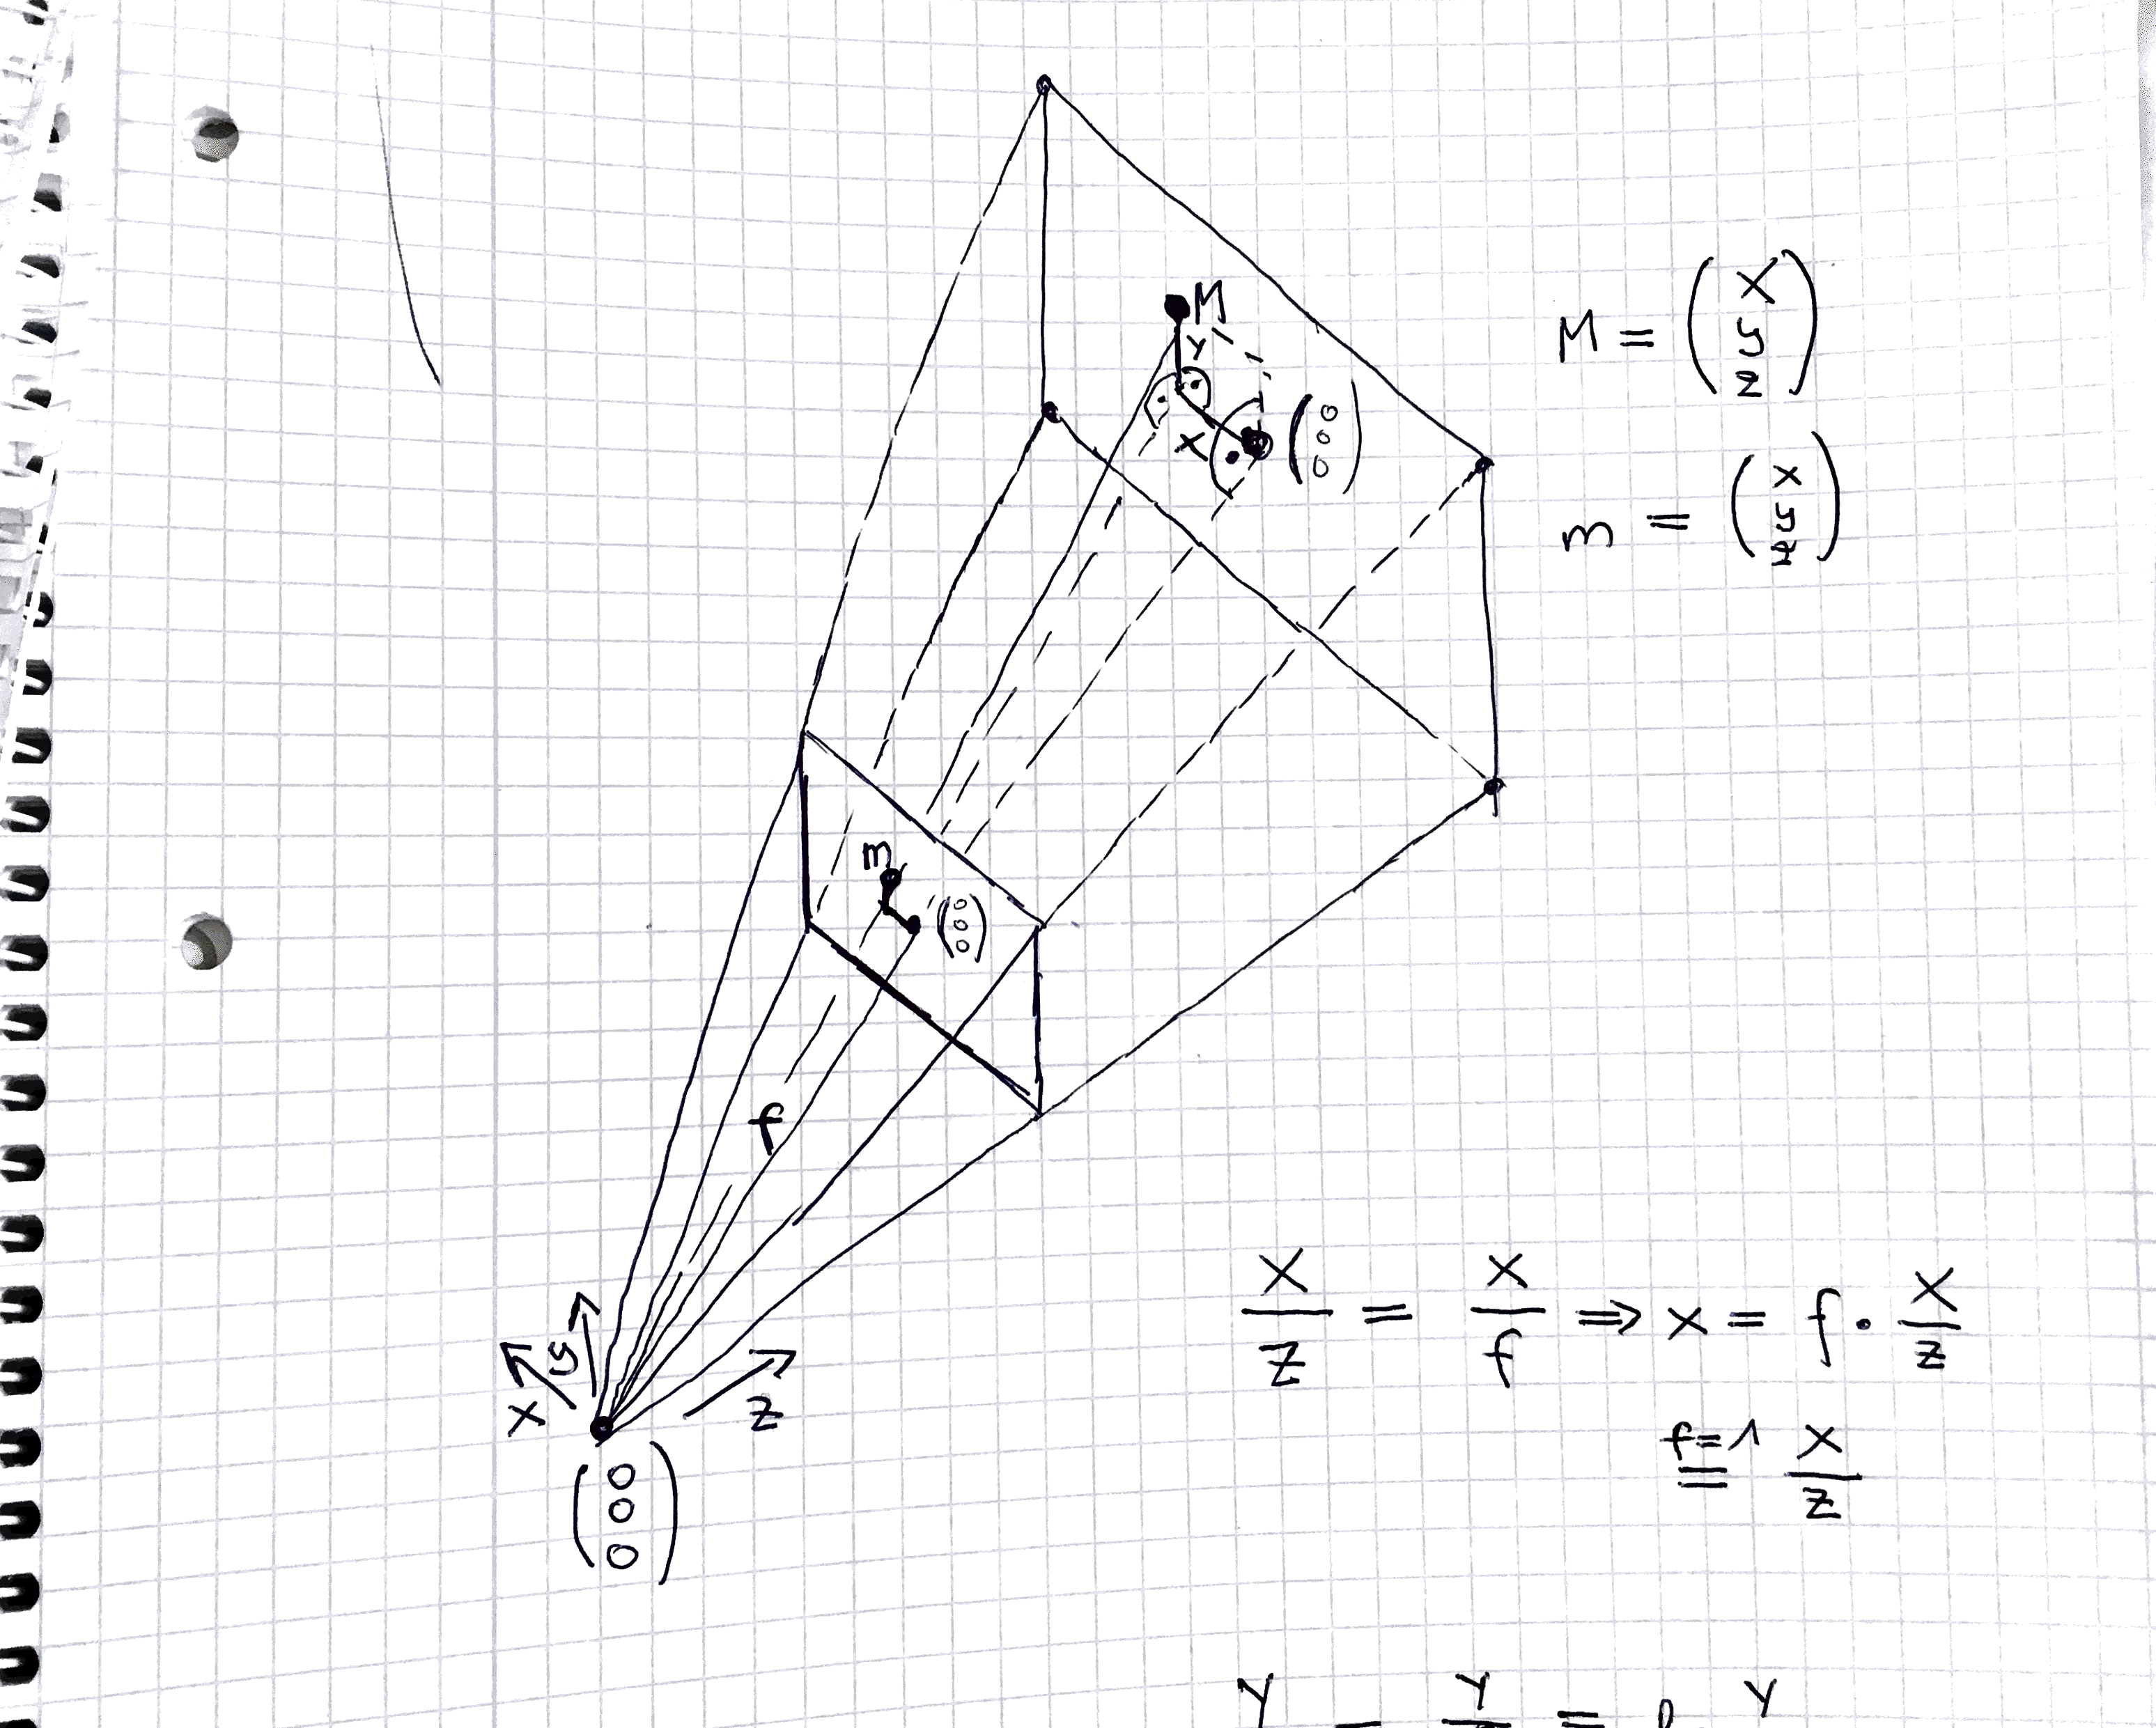 M
Y
X
( 0 0 0 )
M = ( X y z )
m = ( x y z )
m
( 0 0 0 )
f
y
x
z
( 0 0 0 )
X/Z = x/f ⇒ x = f · X/z
f=1 = X/z
Y = Y = Y